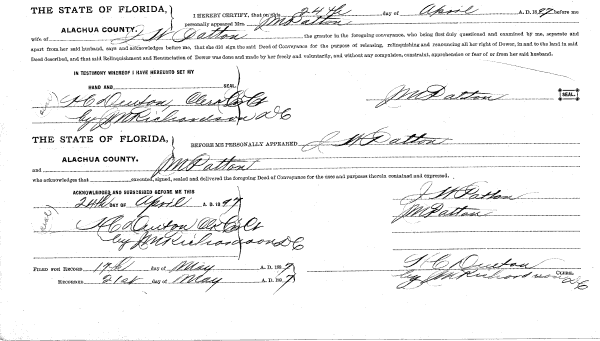 THE STATE OF FLORIDA, I HEREBY CERTIFY, that on this 24th day of April A. D. 1897 before me
ALACHUA COUNTY. personally appeared Mrs. J M Patton
wife of J W Patton the grantor in the foregoing conveyance, who being first duly questioned and examined by me, separate and
apart from her said husband, says and acknowledges before me, that she did sign the said Deed of Conveyance for the purpose of releasing, relinquishing and renouncing all her right of Dower, in and to the land in said
Deed described, and that said Relinquishment and Renunciation of Dower was done and made by her freely and voluntarily, and without any compulsion, constraint, apprehension or fear of or from her said husband.
IN TESTIMONY WHEREOF I HAVE HEREUNTO SET MY
HAND AND SEAL.
(seal) H C Denton Clerk C Ct J M Patton SEAL.
by J M Richardson D C
THE STATE OF FLORIDA, BEFORE ME PERSONALLY APPEARED J W Patton
ALACHUA COUNTY.
and J M Patton
who acknowledges that executed, signed, sealed and delivered the foregoing Deed of Conveyance for the uses and purposes therein contained and expressed.
ACKNOWLEDGED AND SUBSCRIBED BEFORE ME THIS J W Patton
24th DAY OF April A. D. 1897 J M Patton
(seal) H C Denton Clk C Ct
by J M Richardson D C
FILED FOR RECORD 17th day of May A. D. 1897 H C Denton CLERK.
RECORDED 21st day of May A. D. 1897 by J M Richardson D C